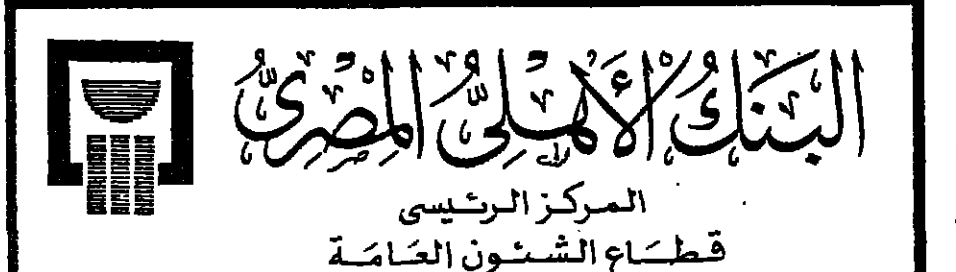 البنك الأهلي المصري
المركز الرئيسى
قطاع الشئون العامة